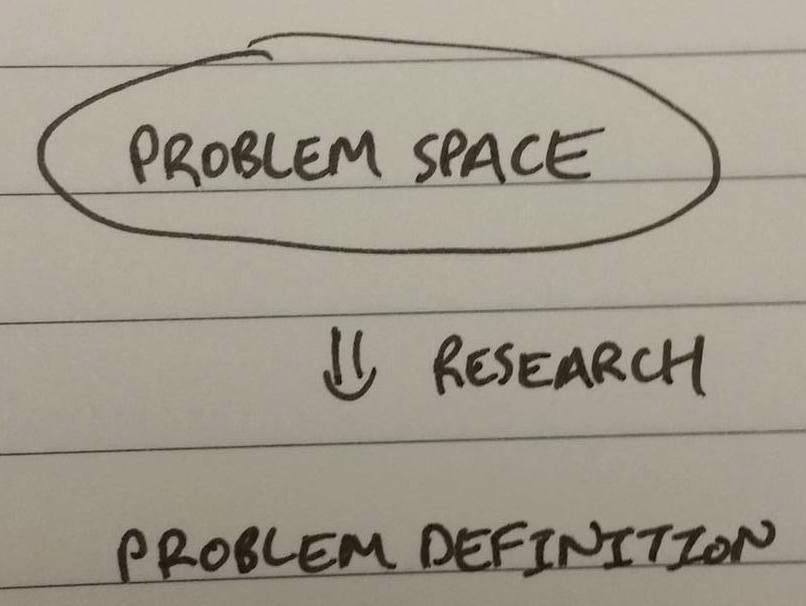 PROBLEM SPACE
RESEARCH
PROBLEM DEFINITION